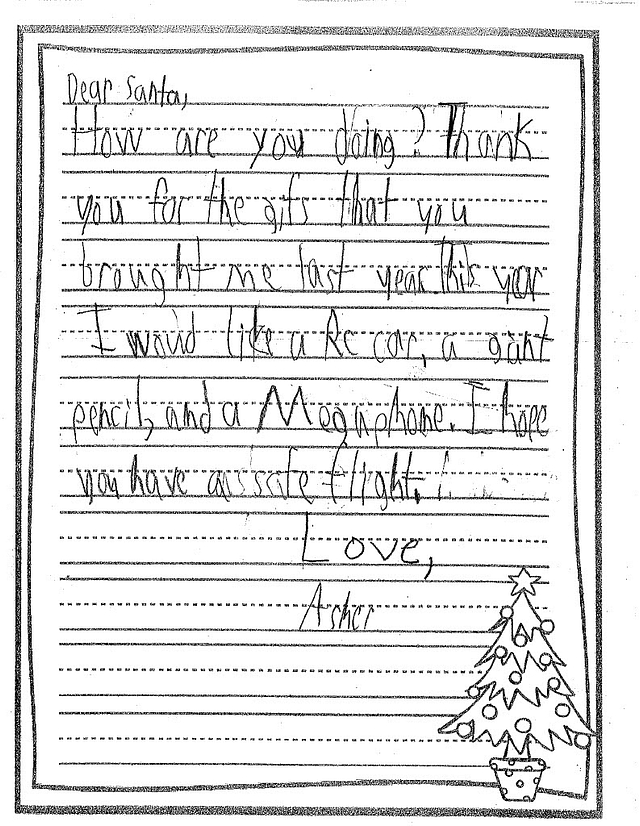 Dear Santa,
How are you doing? Thank
you for the gifs that you
brought me last year. This year
I would like a Rc car, a giant
pencil, and a Megaphone. I hope
you have a safe flight.
Love,
Asher